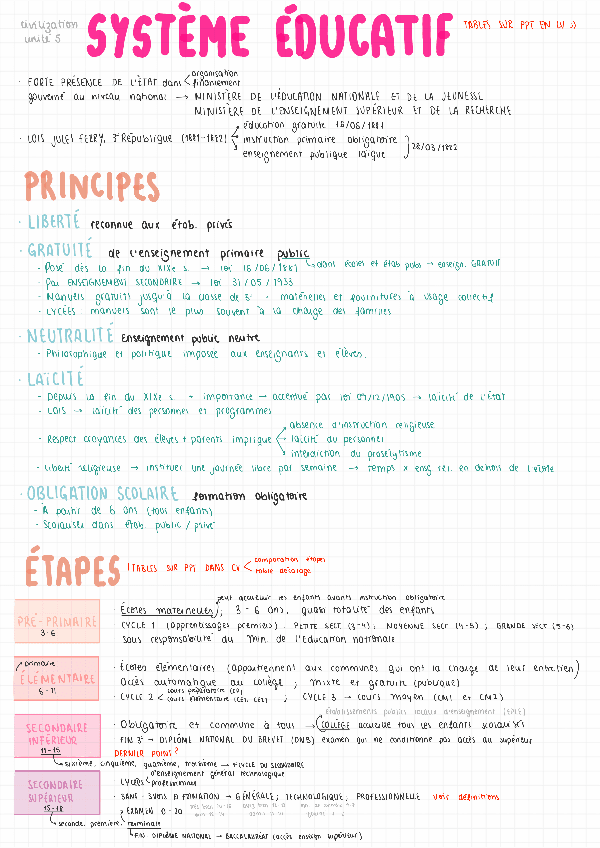 civilization
unité 5
SYSTÈME ÉDUCATIF
TABLES SUR PPT EN CV :)
· FORTE PRÉSENCE DE L'ÉTAT dans
organisation
financiement
gouverné au niveau national → MINISTÈRE DE L'ÉDUCATION NATIONALE ET DE LA JEUNESSE
MINISTÈRE DE L'ENSEIGNEMENT SUPÉRIEUR ET DE LA RECHERCHE
· LOIS JULES FERRY, 3e République (1881-1882)
éducation gratuite 16/06/1881
instruction primaire obligatoire
enseignement publique laïque
28/03/1882
PRINCIPES
· LIBERTÉ reconnue aux étab. privés
· GRATUITÉ de l'enseignement primaire public
dans écoles et étab pubs → enseign. GRATUIT
- Posé dès la fin du XIXe s. → loi 16/06/1881
- Par ENSEIGNEMENT SECONDAIRE → loi 31/05/1933
- Manuels gratuits jusqu'à la classe de 3e - matérielles et fournitures à usage collectif
- LYCÉES manuels sont le plus souvent à la charge des familles
· NEUTRALITÉ Enseignement public neutre
- Philosophique et politique imposée aux enseignants et élèves.
· LAÏCITÉ
- Depuis la fin du XIXe s. + importance → accentué par loi 09/12/1905 → laïcité de l'État
- LOIS → laïcité des personnes et programmes
- Respect croyances des élèves + parents implique
absence d'instruction religieuse
laïcité du personnel
interdiction du prosélytisme
- Liberté religieuse → instituer une journée libre par semaine → temps x ens rel. en dehors de l'école
· OBLIGATION SCOLAIRE formation obligatoire
- À partir de 6 ans (tous enfants)
- Scolarisés dans étab. public / privé
ÉTAPES
! TABLES SUR PPT DANS CV
comparation étapes
table décalage
PRÉ-PRIMAIRE
3-6
peut accueillir les enfants avants instruction obligatoire
· Écoles maternelles, 3-6 ans, quasi totalité des enfants
CYCLE 1 (apprentissages premiers). PETITE SECT (3-4); MOYENNE SECT (4-5); GRANDE SECT (5-6)
Sous responsabilité du Min. de l'Éducation nationale
primaire
ÉLÉMENTAIRE
6-11
· Écoles élémentaires (appartiennent aux communes qui ont la charge de leur entretien)
Accès automatique au collège; mixte et gratuite (publique)
· CYCLE 2
cours préparatoire (CP)
cours élémentaire (CE1, CE2)
; CYCLE 3 → cours moyen (CM1 et CM2)
SECONDAIRE
INFÉRIEUR
11-15
établissements publics locaux d'enseignement (EPLE)
· Obligatoire et commune à tous → COLLÈGE accueille tous les enfants scolarisés
FIN 3e → DIPLÔME NATIONAL DU BREVET (DNB) examen qui ne conditionne pas accès au supérieur
DERNIER POINT?
sixième, cinquième, quatrième, troisième → 1r CYCLE DU SECONDAIRE
SECONDAIRE
SUPÉRIEUR
15-18
· LYCÉES
d'enseignement général technologique
professionnels
· 3 VOIES D FORMATION → GÉNÉRALE; TECHNOLOGIQUE, PROFESSIONNELLE Voir définitions
EXAMEN 0-20
seconde, première, terminale
FIN DIPLÔME NATIONAL → BACCALAURÉAT (accès enseign supérieur)